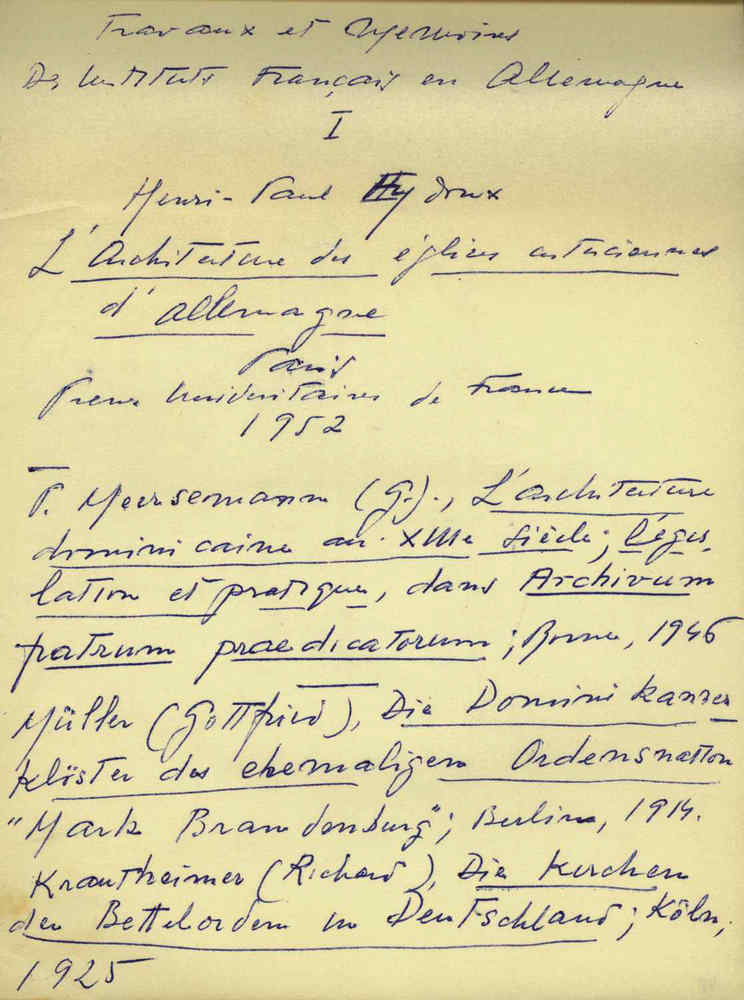 Travaux et Memoires
Des Instituts Français en Allemagne
I
Henri-Paul Eydoux
L'Architecture des églises cisterciennes
d'allemagne
Paris
Presses Universitaires de France
1952
P. Meersemann (G.)., L'architecture
dominicaine au XIIIe siècle; légis.
lation et pratique, dans Archivum
fratrum praedicatorum; Rome, 1946
Müller (Gottfried), Die Dominikaner
klöster der ehemaligen Ordensnation
"Mark Brandenburg"; Berlin, 1914.
Krautheimer (Richard), Die Kirchen
der Bettelorden in Deutschland; Köln,
1925